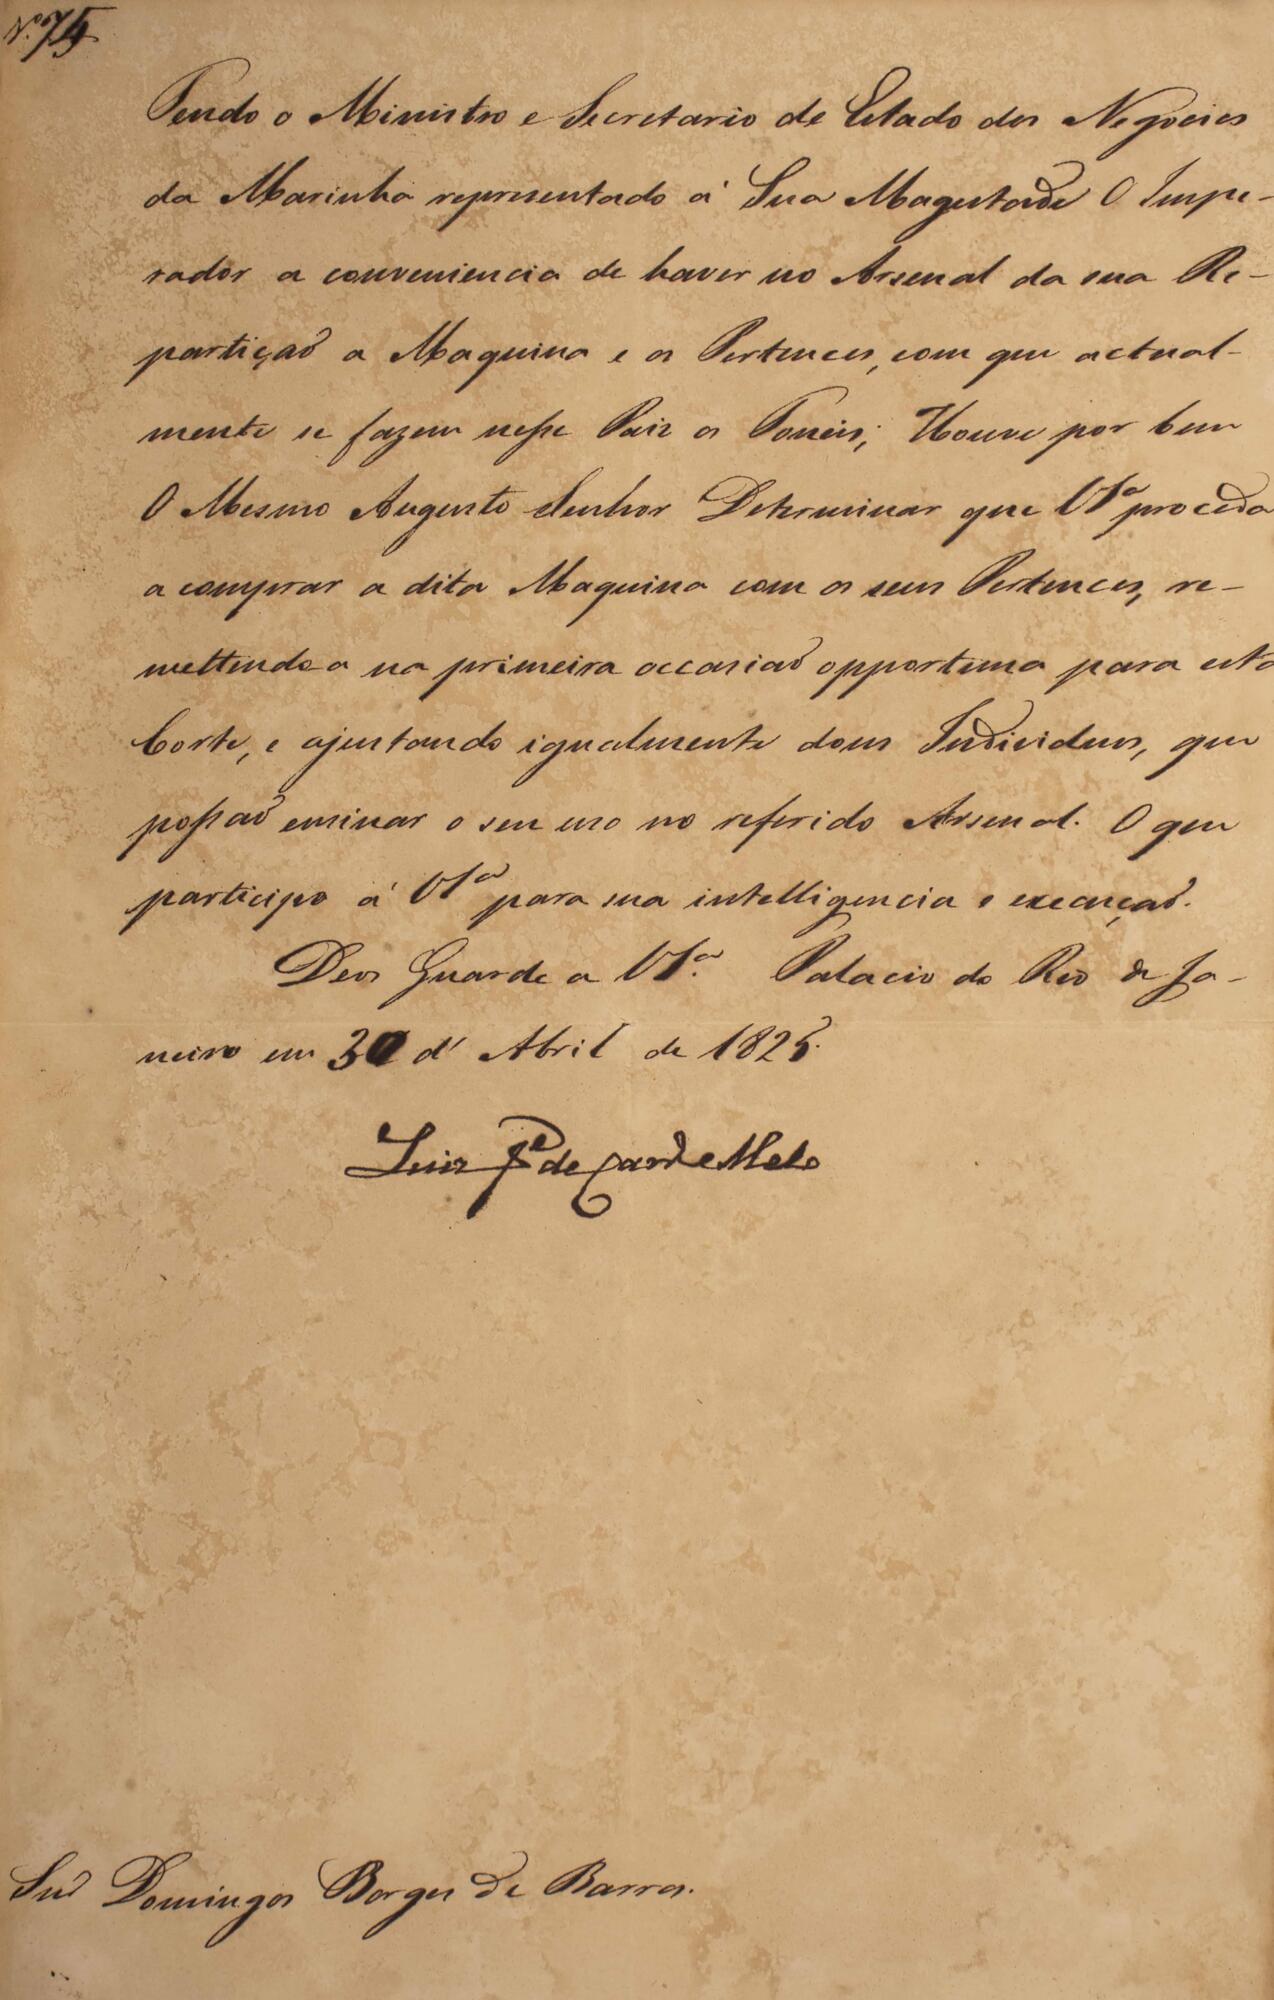 Nº 75
Tendo o Ministro e Secretario de Estado dos Negocios
da Marinha representado á Sua Magestade O Impe-
rador a conveniencia de haver no Arsenal da sua Re-
partiçaõ a Maquina e os Pertences, com que actual-
mente se fazem nesse Paiz os Toneis; Houve por bem
O Mesmo Augusto Senhor Determinar que VSª proceda
a comprar a dita Maquina com os seus Pertences, re-
mettendo a na primeira occasiaõ opportuna para esta
Corte, e ajustando igualmente dous Individuos, que
possaõ ensinar o seu uso no referido Arsenal. O que
participo á VSª para sua intelligencia e execuçaõ.
Deos Guarde a VSª. Palacio do Rio de Ja-
neiro em 30 d' Abril de 1825.
Luiz Jê de Carvº e Melo
Snr Domingos Borges de Barros.